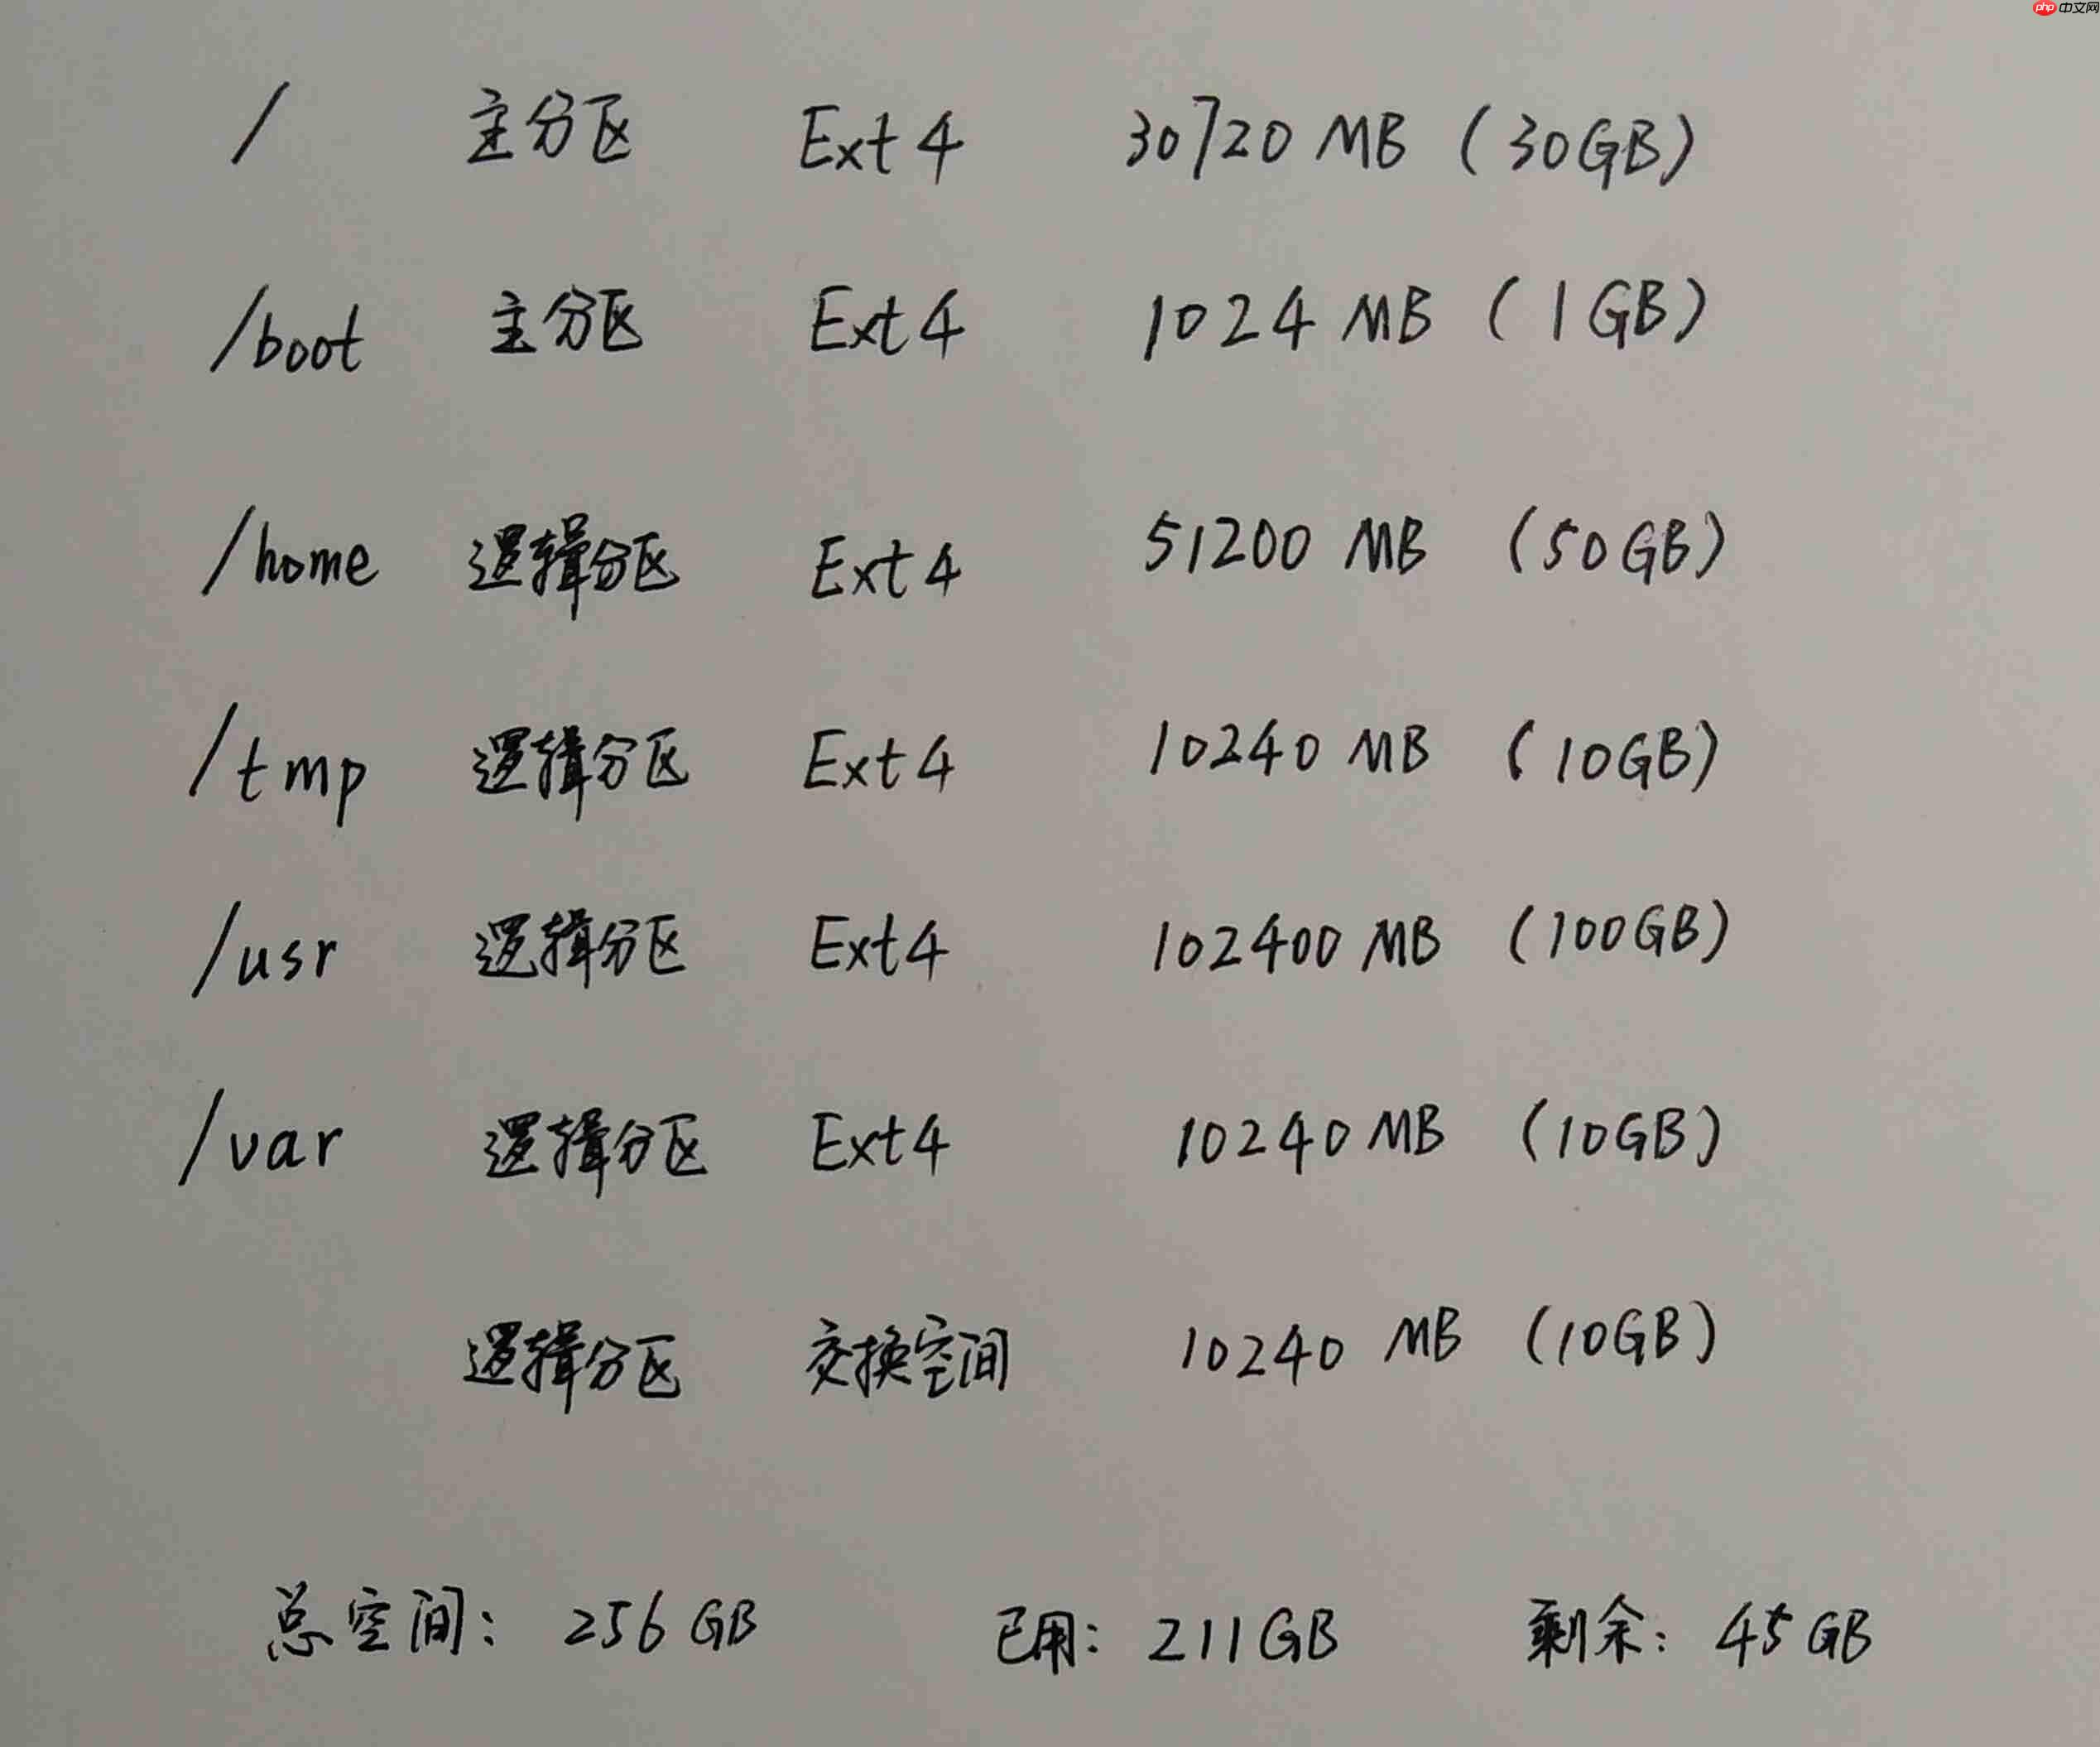 php 中文网
/ 主分区 Ext4 30720 MB (30GB)
/boot 主分区 Ext4 1024 MB (1GB)
/home 逻辑分区 Ext4 51200 MB (50GB)
/tmp 逻辑分区 Ext4 10240 MB (10GB)
/usr 逻辑分区 Ext4 102400 MB (100GB)
/var 逻辑分区 Ext4 10240 MB (10GB)
逻辑分区 交换空间 10240 MB (10GB)
总空间: 256 GB 已用: 211GB 剩余: 45GB